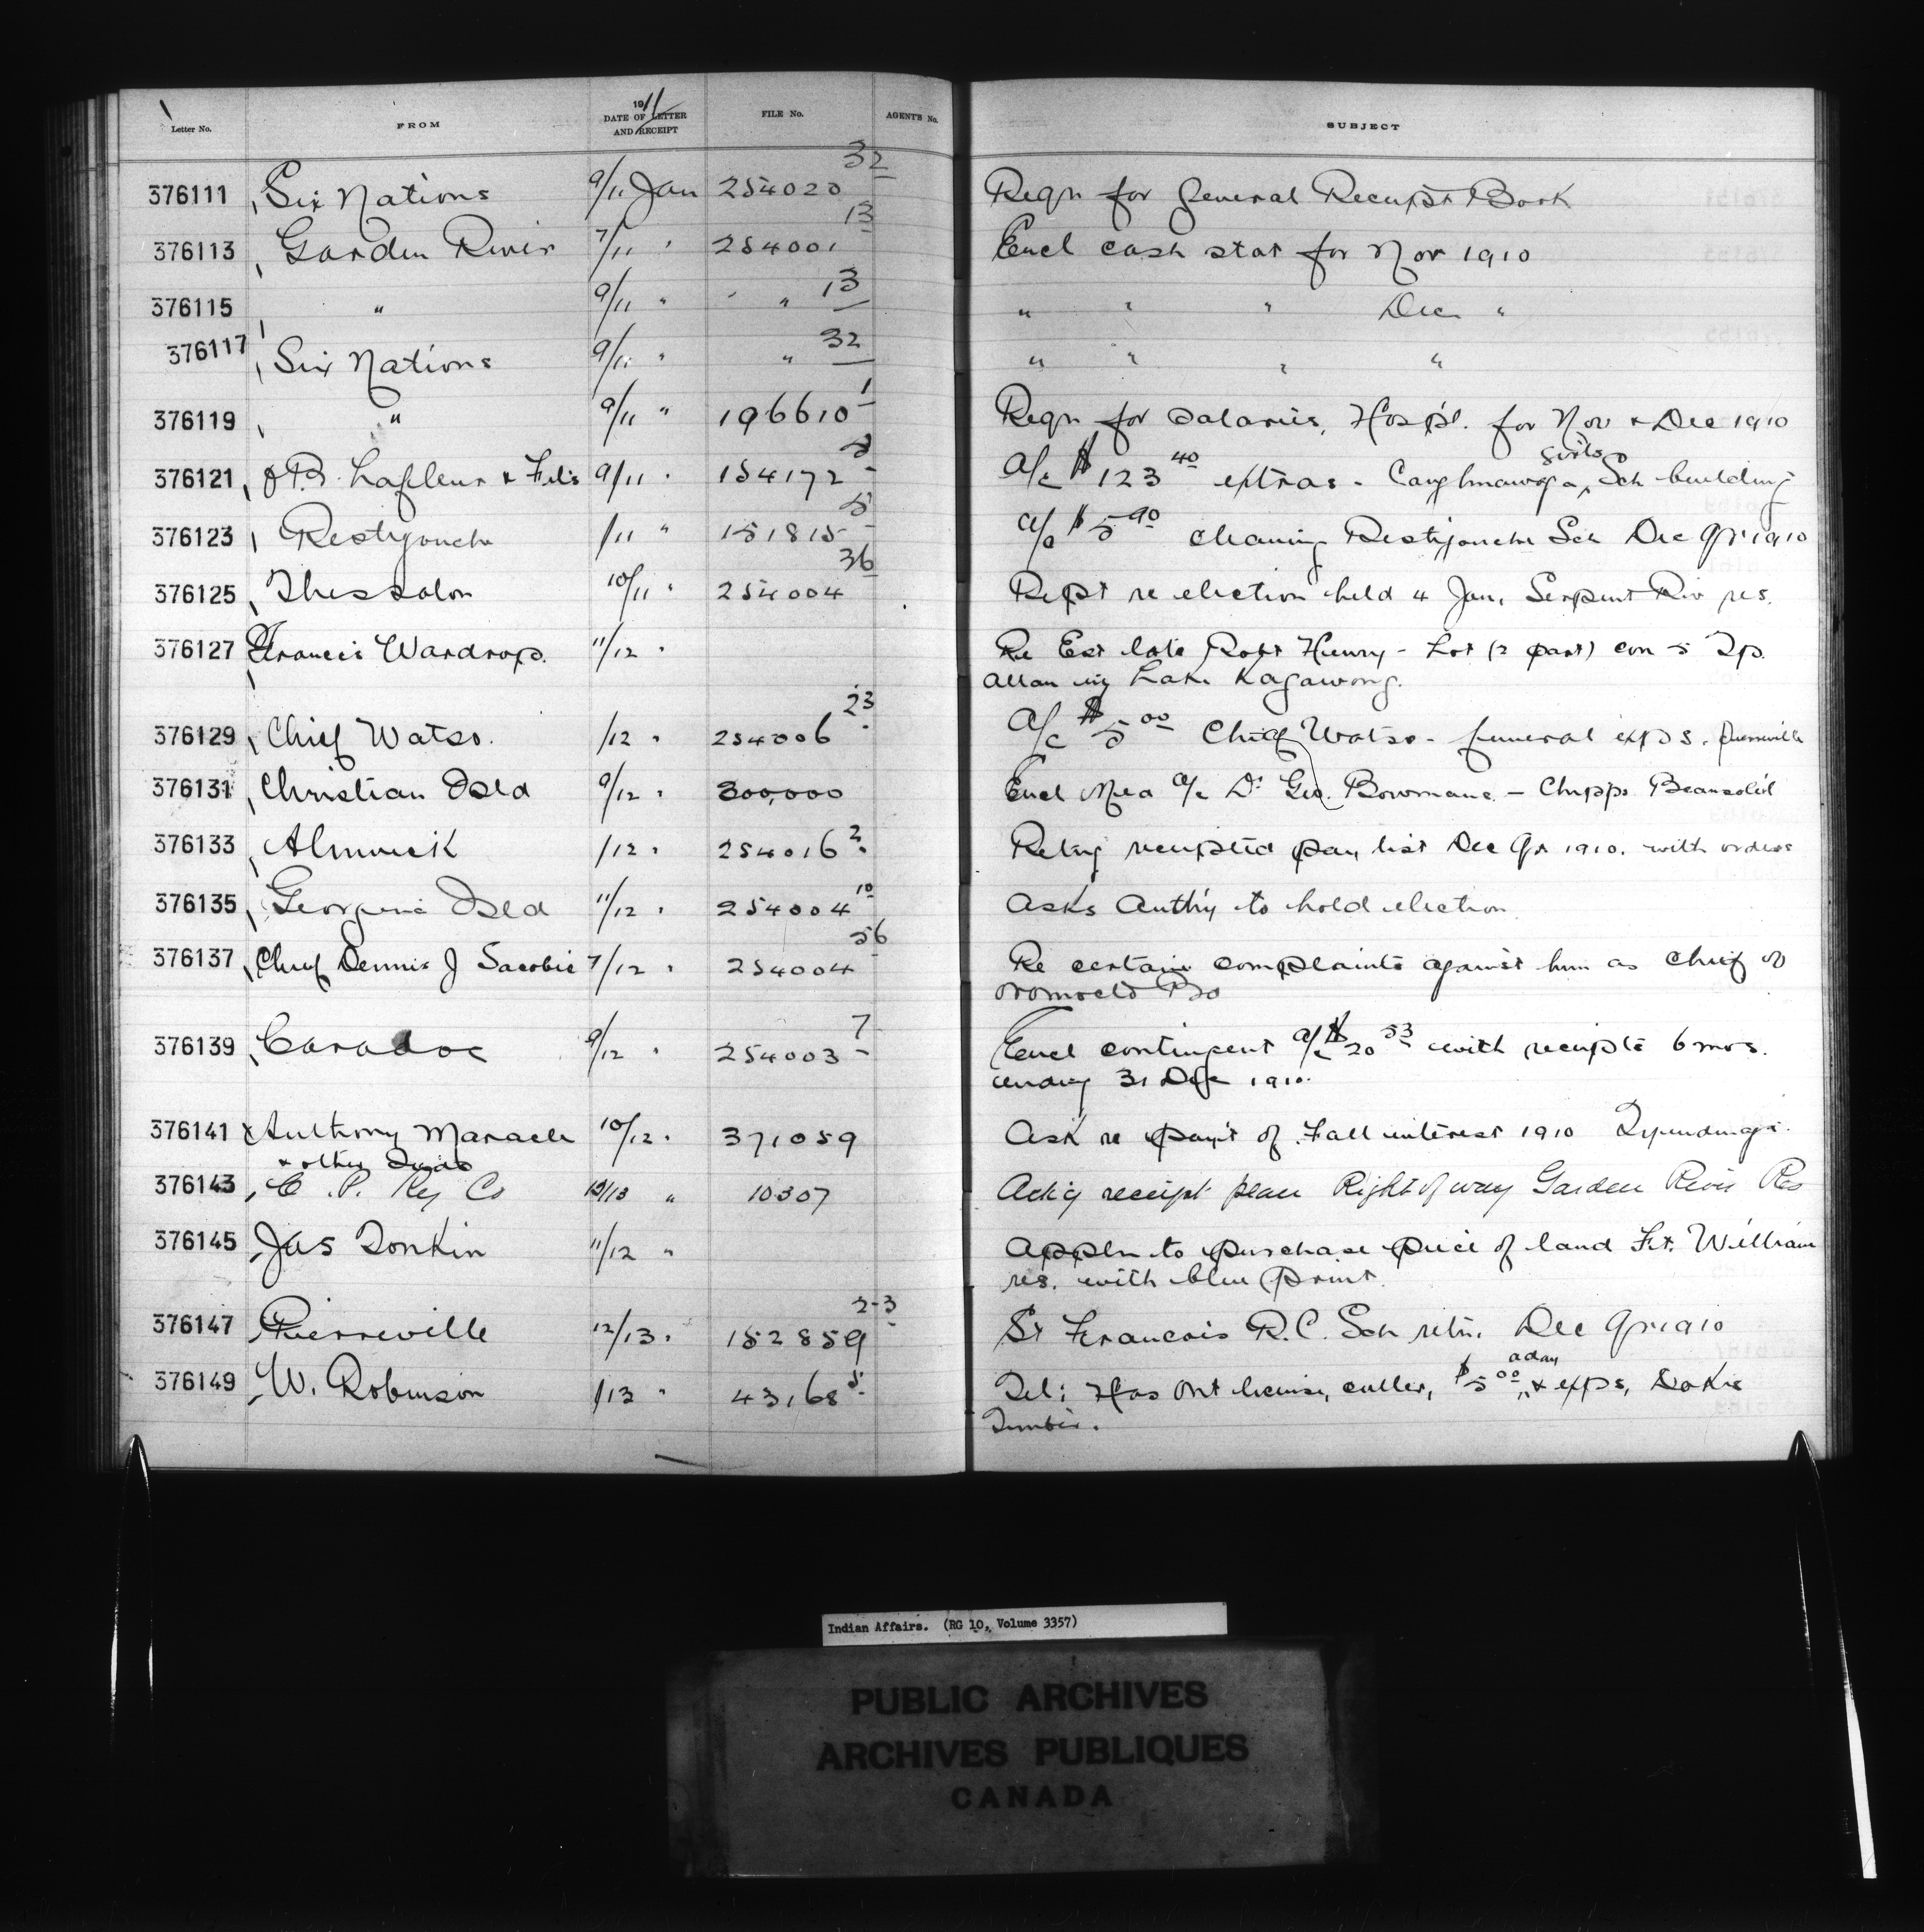 Letter No. FROM 1911 DATE OF LETTER AND RECEIPT FILE No. AGENT'S No. SUBJECT
376111 Six Nations 9/11 Jan 254020 32 Reqn for General Receipt Book
376113 Garden River 7/11 " 254001 13 Encl cash stat for Nov 1910
376115 " 9/11 " " 13 " " " Dec "
376117 Six Nations 9/11 " " 32 " " " "
376119 " 9/11 " 196610 1 Reqn for Salaries, Hospl. for Nov & Dec 1910
376121 Lafleur & Fils 9/11 " 154172 a/c $123 40 extras - Caughnawaga girls Sch building
376123 Restigouche /11 " 151815 a/c $5 90 cleaning Restigouche Sch Dec Qr 1910
376125 Thessalon 10/11 " 254004 36 Rept re election held 4 Jan, Serpent Riv res.
376127 Francis Wardrop. 11/12 " Re Est late Robt Henry - Lot (2 part) con 5 Tp.
Allan Lake Kagawong.
376129 Chief Watso. /12 " 254006 23 a/c $5 00 Chief Watso - funeral exps. Pierreville
376131 Christian Isld 9/12 " 300,000 Encl Med a/c Dr Geo. Bowmans - Chipps Beausoleil
376133 Alnwick /12 " 254016 2 Retng receipted pay list Dec Qr 1910. with orders
376135 Georgina Isld 11/12 " 254004 10 Asks Authy to hold election
376137 Chief Dennis J Sacobie 7/12 " 254004 56 Re certain complaints against him as Chief of
Oromocto Bd
376139 Caradoc 9/12 " 254003 7 Encl contingent a/c $20 53 with receipts 6 mos.
ending 31 Dec 1910.
376141 Anthony Maracle 10/12 " 371059 Ask re pay't of Fall interest 1910 Tyendinaga.
& other Inds
376143 C. P. Ry Co 12/13 " 10307 Ackg receipt plan Right of way Garden River Res
376145 Jas Donkin 11/12 " Appln to purchase piece of land Ft. William
res. with blue print.
376147 Pierreville 12/13 " 152859 2-3 St Francois R.C. Sch retn. Dec Qr 1910
376149 W. Robinson /13 " 43168 5 Tel: Has Ont license, culler, $5 00 a day & exps, Dokis
Timber.
Indian Affairs. (RG 10, Volume 3357)
PUBLIC ARCHIVES
ARCHIVES PUBLIQUES
CANADA